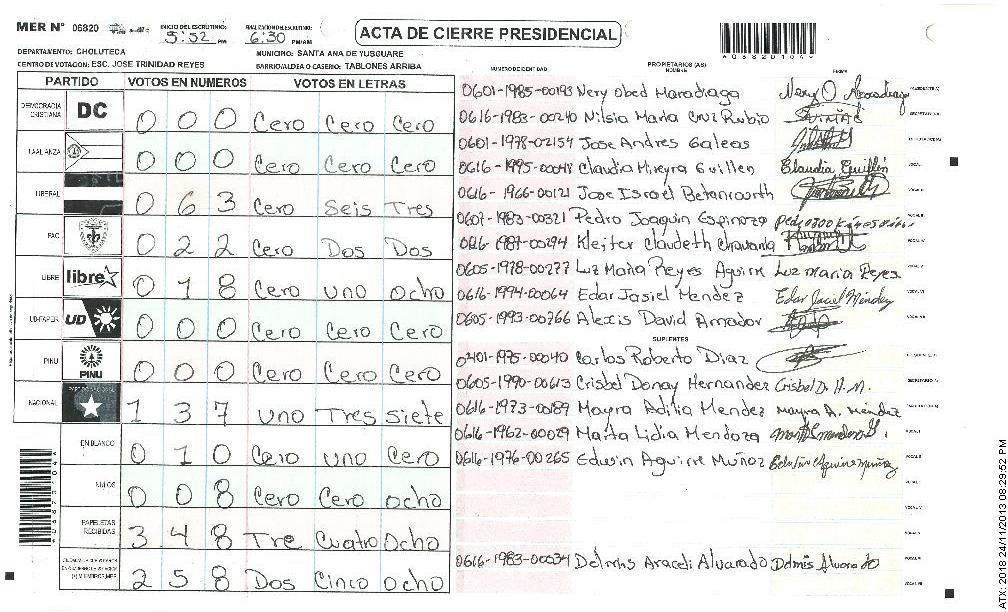 MER N° 06820
INICIO DEL ESCRUTINIO: 5:52 PM
FINALIZACION DEL ESCRUTINIO: 6:30 PM/AM
ACTA DE CIERRE PRESIDENCIAL
DEPARTAMENTO: CHOLUTECA
MUNICIPIO: SANTA ANA DE YUSGUARE
CENTRO DE VOTACION: ESC. JOSE TRINIDAD REYES
BARRIO/ALDEA O CASERIO: TABLONES ARRIBA
PARTIDO VOTOS EN NUMEROS VOTOS EN LETRAS
DEMOCRACIA CRISTIANA DC 0 0 0 Cero Cero Cero
LA ALIANZA 0 0 0 Cero Cero Cero
LIBERAL 0 6 3 Cero Seis Tres
PAC 0 2 2 Cero Dos Dos
LIBRE libre 0 1 8 Cero uno ocho
UD-FAPER UD 0 0 0 Cero Cero Cero
PINU PINU 0 0 0 Cero Cero Cero
NACIONAL 1 3 7 uno Tres siete
EN BLANCO 0 1 0 Cero uno Cero
NULOS 0 0 8 Cero Cero ocho
PAPELETAS RECIBIDAS 3 4 8 Tre Cuatro ocho
2 5 8 Dos Cinco ocho
NUMERO DE IDENTIDAD PROPIETARIOS (AS) NOMBRE FIRMA
0601-1985-00193 Nery Obed Maradiaga
0616-1983-00240 Nilsia Maria Cruz Rubio
0601-1978-02154 Jose Andres Galeas
0616-1995-00048 Claudia Mireyra Guillen Claudia Guillén
0616-1966-00121 Jose Israel Betancourth
0607-1983-00321 Pedro Joaquin Espinoza
0616-1987-00294 Kleiter Claudeth
0605-1978-00277 Luz Maria Reyes Aguirre Luz maria Reyes
0616-1994-00064 Edar Jasiel Mendez Edar Jaciel Méndez
0605-1993-00766 Alexis David Amador
SUPLENTES
0401-1975-00040 Carlos Roberto Diaz
0605-1990-00613 Crisbel Donay Hernandez Crisbel D. H. M.
0616-1973-00189 Mayra Adilia Mendez Mayra A. Méndez
0616-1962-00029 Marta Lidia Mendoza
0616-1976-00265 Edwin Aguirre Muñoz
0616-1983-00034 Delmis Araceli Alvarado Delmis Alvarado
ATX: 2018 24/11/2013 08:29:52 PM